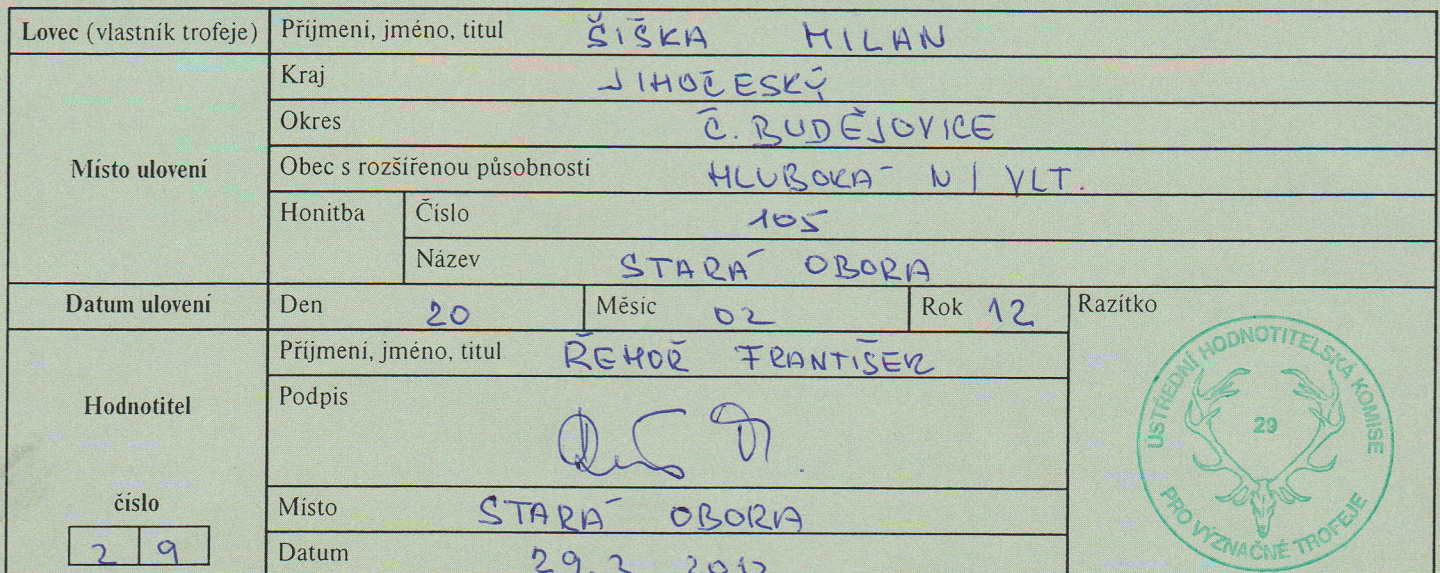 Lovec (vlastník trofeje) Příjmení, jméno, titul ŠIŠKA MILAN
Místo ulovení
Kraj JIHOČESKÝ
Okres Č. BUDĚJOVICE
Obec s rozšířenou působností HLUBOKÁ N/VLT.
Honitba Číslo 105
Název STARÁ OBORA
Datum ulovení Den 20 Měsíc 02 Rok 12 Razítko
Hodnotitel
Příjmení, jméno, titul ŘEHOŘ FRANTIŠEK
Podpis
číslo
2 9
Místo STARÁ OBORA
Datum 2012
ÚSTŘEDNÍ HODNOTITELSKÁ KOMISE
29
PRO VÝZNAČNÉ TROFEJE